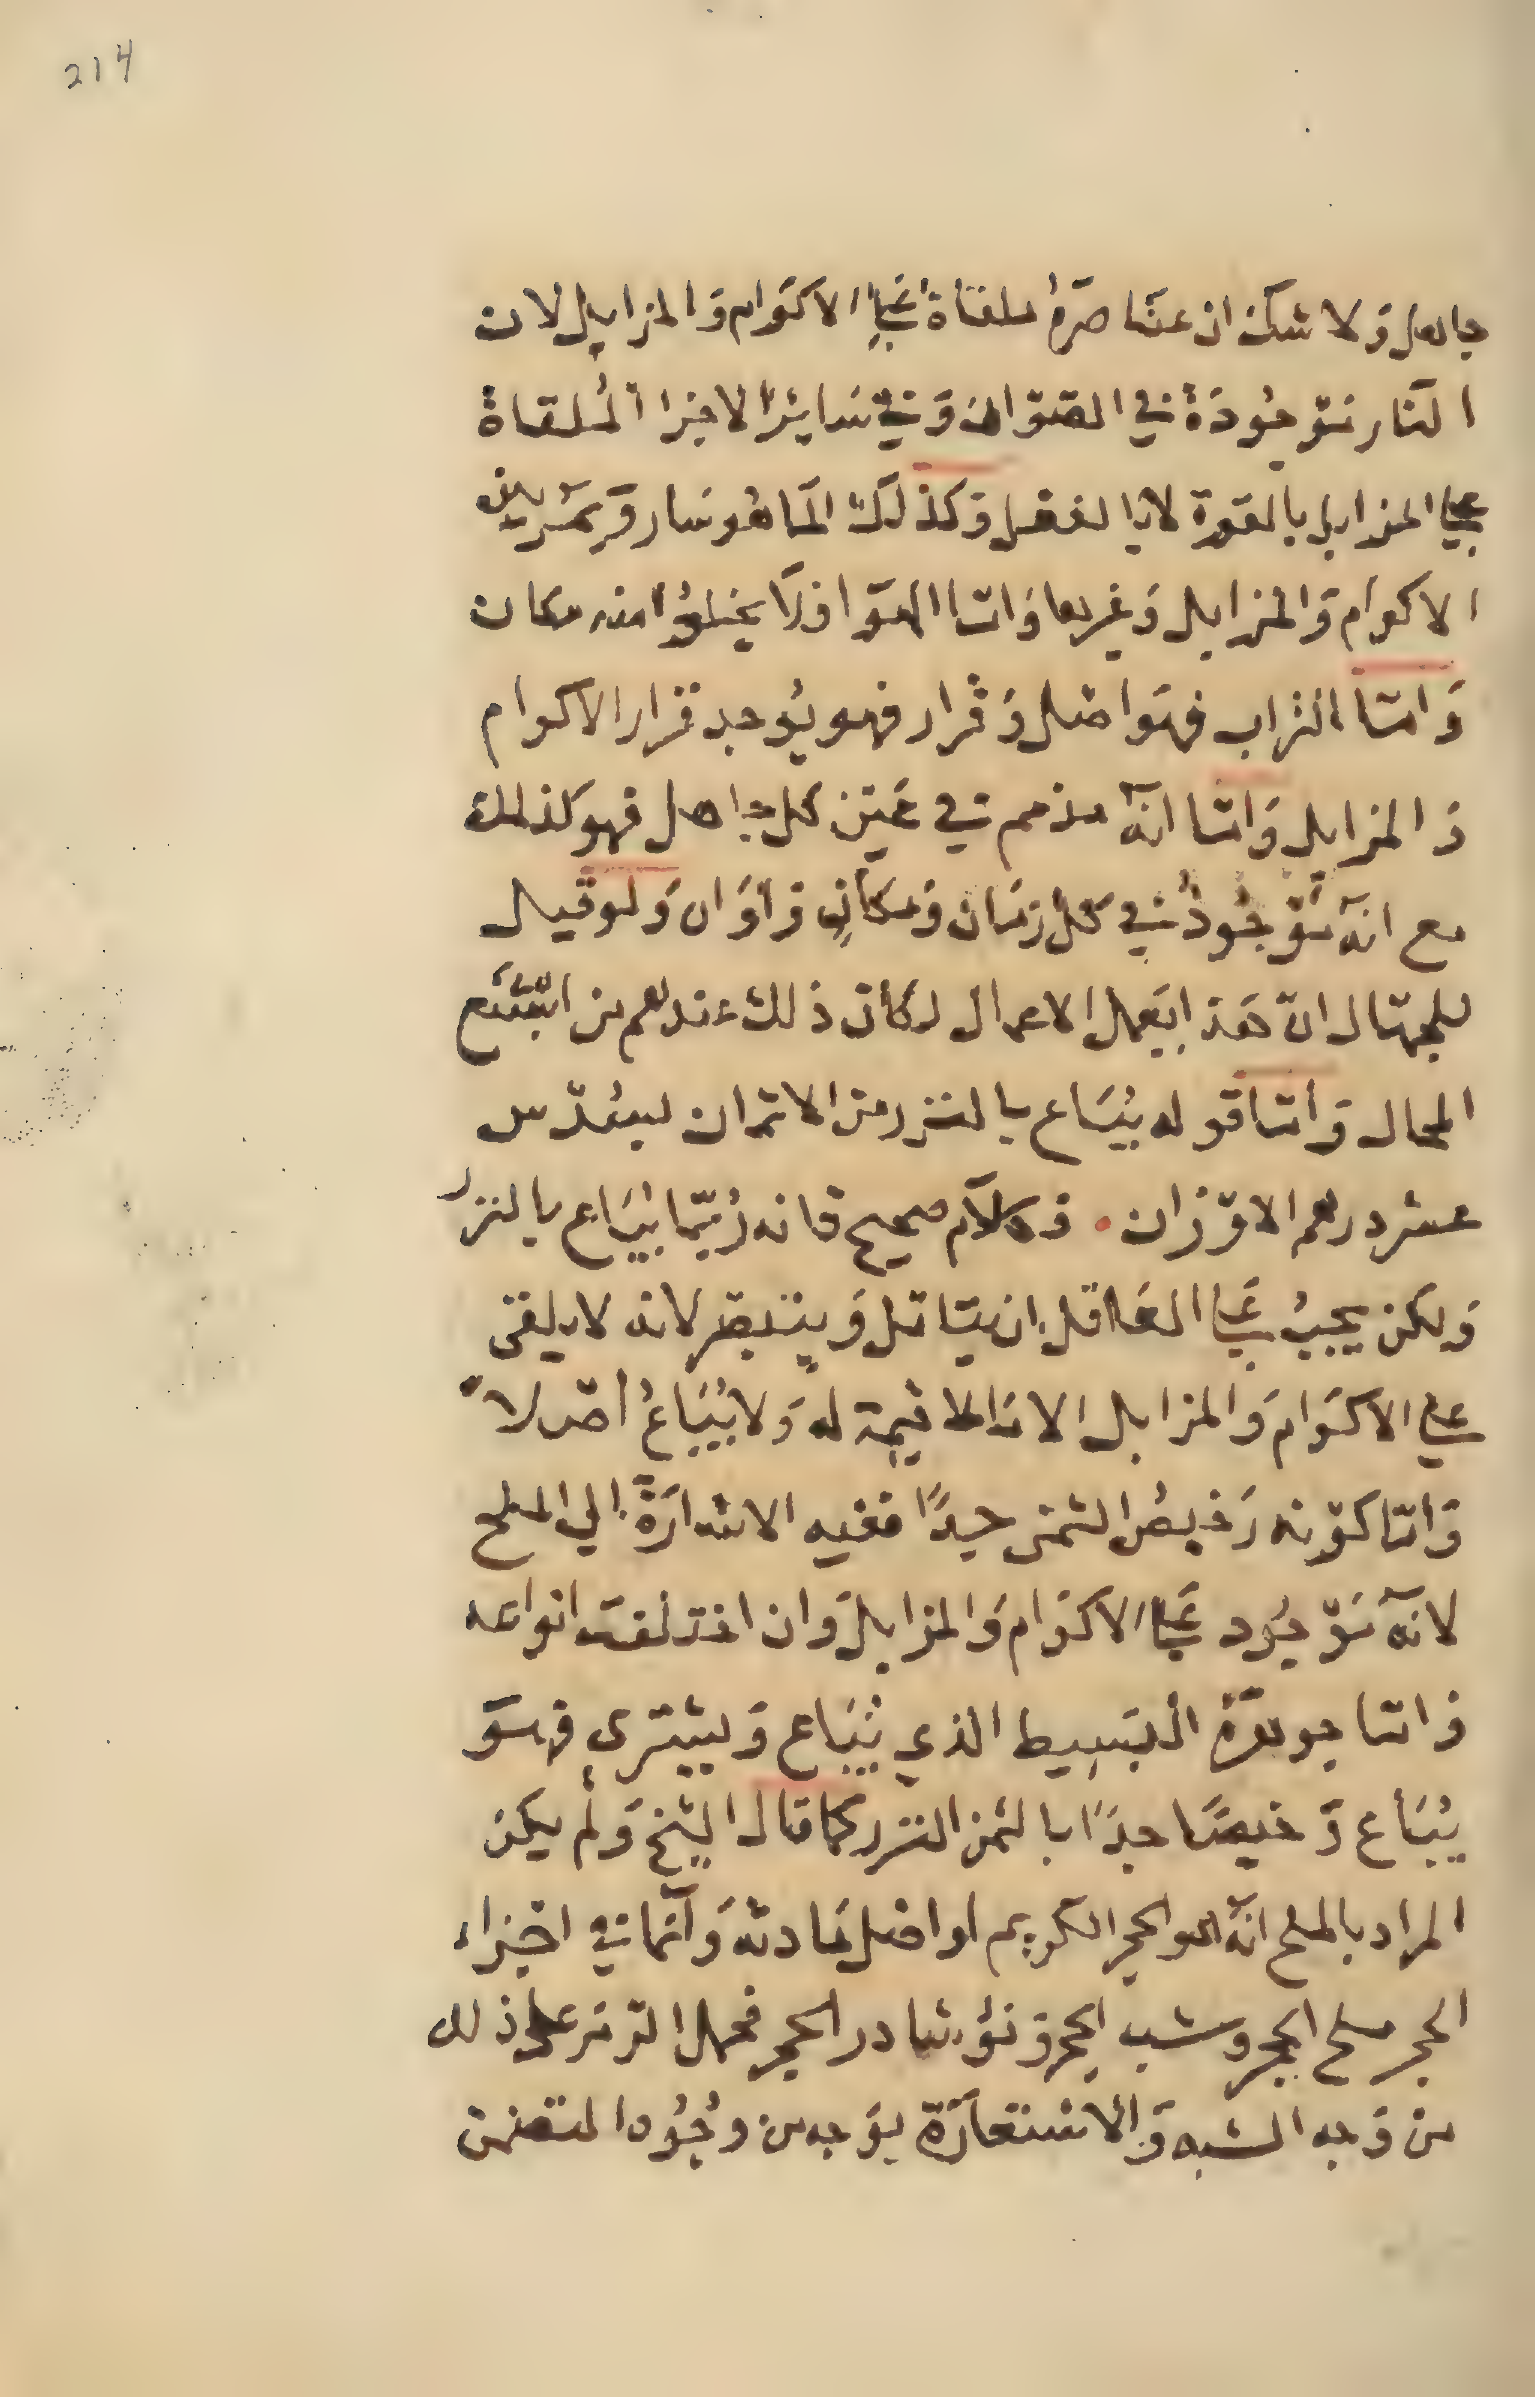 214
جاهل ولا شك ان عناصره ملقاة على الاكوام والمزابل لان
النار موجودة في الصوان وفي سائر الاجزا الملقاة
على المزابل بالقوة لا بالفعل وكذلك الما هو سار ويمر بين
الاكوام والمزابل وغيرها واما الهوا فلا يخلوا منه مكان
واما التراب فهو اصل وقرار فهو يوجد قرار الاكوام
والمزابل واما انه مذمم في عين كل جاهل فهو كذلك
مع انه موجود في كل زمان ومكان واوان ولو قيل
للجهال ان هذا يعمل الاعمال لكان ذلك عندهم من اشنع
المحال واما قوله يباع بالنزر من الاثمان لسدس
عشر درهم الاوزان. فكلام صحيح فانه ربما يباع بالنزر
ولكن يجب على العاقل ان يتامل ويتبصر لانه لا يلقى
على الاكوام والمزابل الا ما لا قيمة له ولا يباع اصلا
واما كونه رخيص الثمن جدا ففيه الاشارة الي الملح
لانه موجود على الاكوام والمزابل وان اختلفت انواعه
واما جوهره البسيط الذي يباع ويشترى فهو
يباع رخيصا جدا بالثمن النزر كما قال الشيخ ولم يكن
المراد بالملح انه هو الحجر الكريم او اصل مادته وانما في اجزاء
الحجر ملح الحجر وشب الحجر ونوشادر الحجر فحمل الرمز على ذلك
من وجه الشبه والاستعارة بوجه من وجوه المتضمن